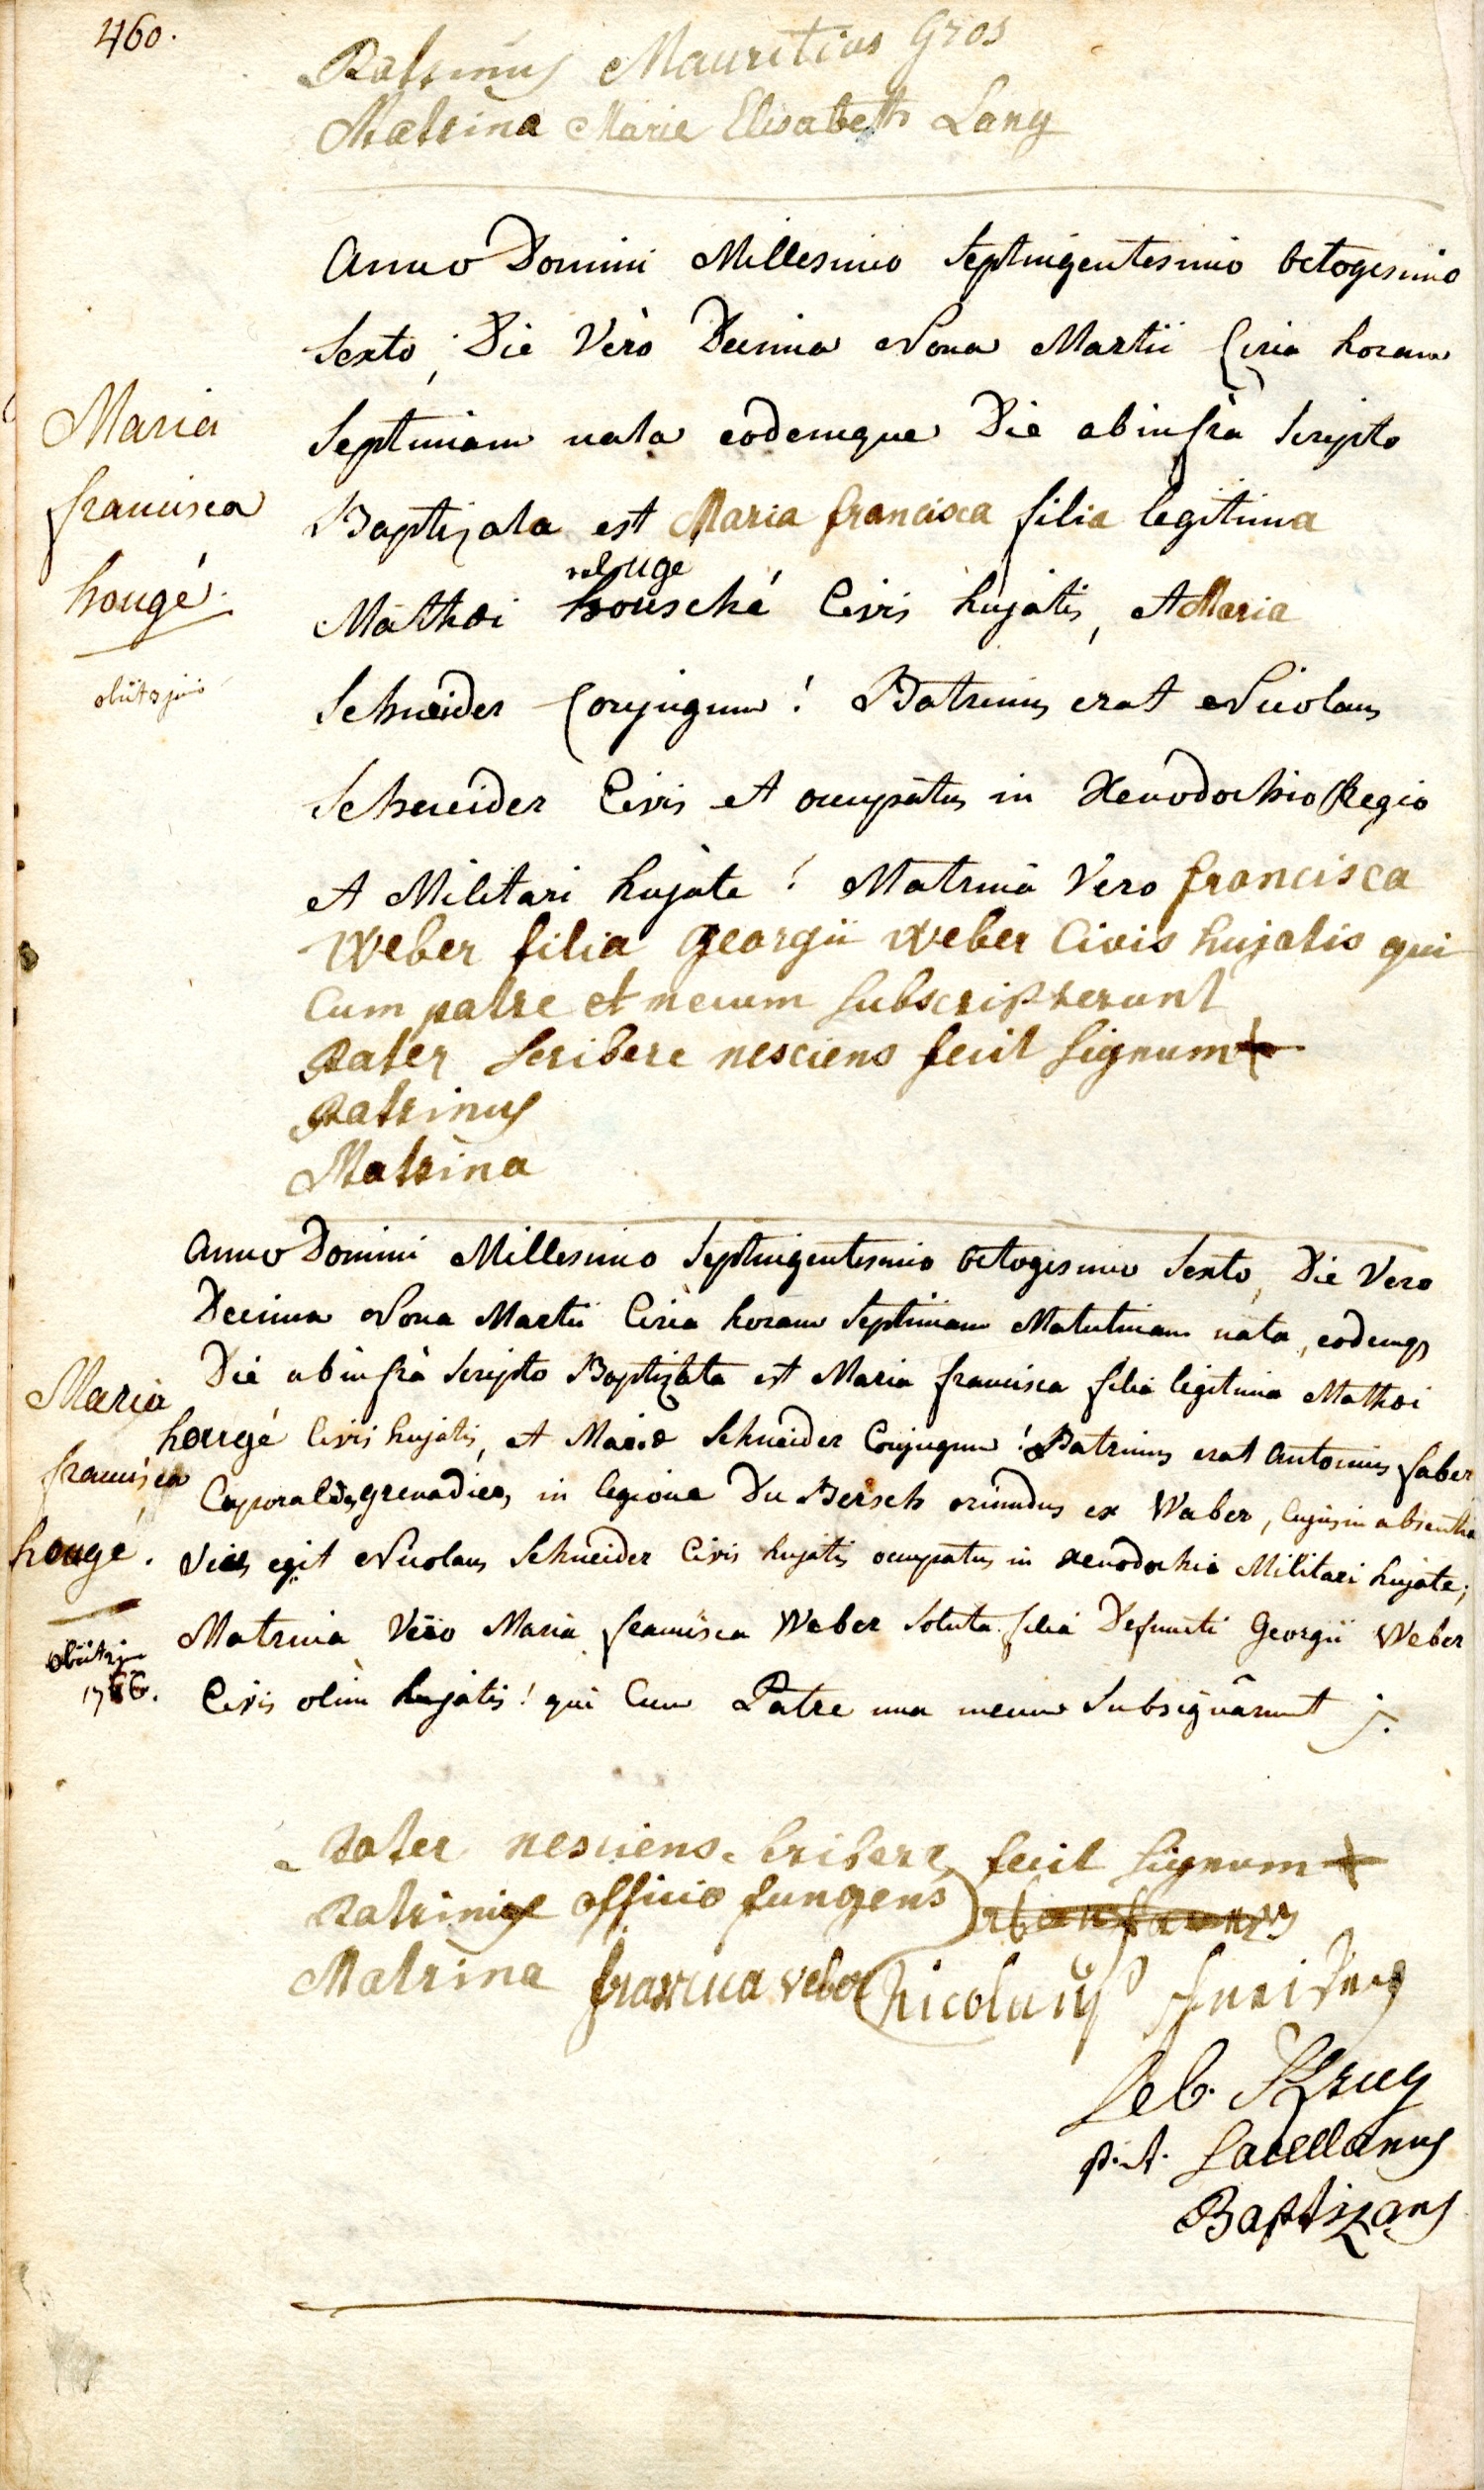 460.
Patrinus Mauritius Gros
Matrina Marie Elisabeth Lang
Anno Domini Millesimo Septingentesimo octogesimo
Sexto, Die Verò Decima Nona Martii Circa horam
Septimam nata eodemque Die ab infrà Scripto
Baptizata est Maria francisca filia legitima
vel ouge
Mathæi housché Civis hujatis, et Maria
Schneider Conjugum! Patrinus erat Nicolaus
Schneider Civis et occupatus in Xenodochio Regio
et Militari hujate! Matrina Vero francisca
Weber filia georgii Weber Civis hujatis qui
Cum patre et mecum subscripserunt
Pater scribere nesciens fecit signum +
Patrinus
Matrina
Maria
francisca
hougé.
obiit
Anno Domini Millesimo Septingentesimo octogesimo Sexto, Die Vero
Decima Nona Martii Circa horam Septimam Matutinam nata, eodemq
Die ab infrà Scripto Baptizata est Maria francisca filia legitima Mathæi
hougé Civis hujatis, et Maria Schneider Conjugum! Patrinus erat Antonius faber
Caporalis grenadier, in legione Du Bersch oriundus ex Waber, Cujus in absentia
Vices egit Nicolaus Schneider Civis hujatis occupatus in Xenodochio Militari hujate;
Matrina Vero Maria francisca Weber Soluta filia Defuncti Georgii Weber
Civis olim hujatis! qui Cum Patre una mecum Subsignârunt
Maria
francisca
hougé.
obiit
1786.
Pater nesciens scribere fecit signum +
Patrini officio fungens
Matrina francisca veber Nicolaus Schneider
Seb. Krug
p.t. Sacellanus
Baptizans